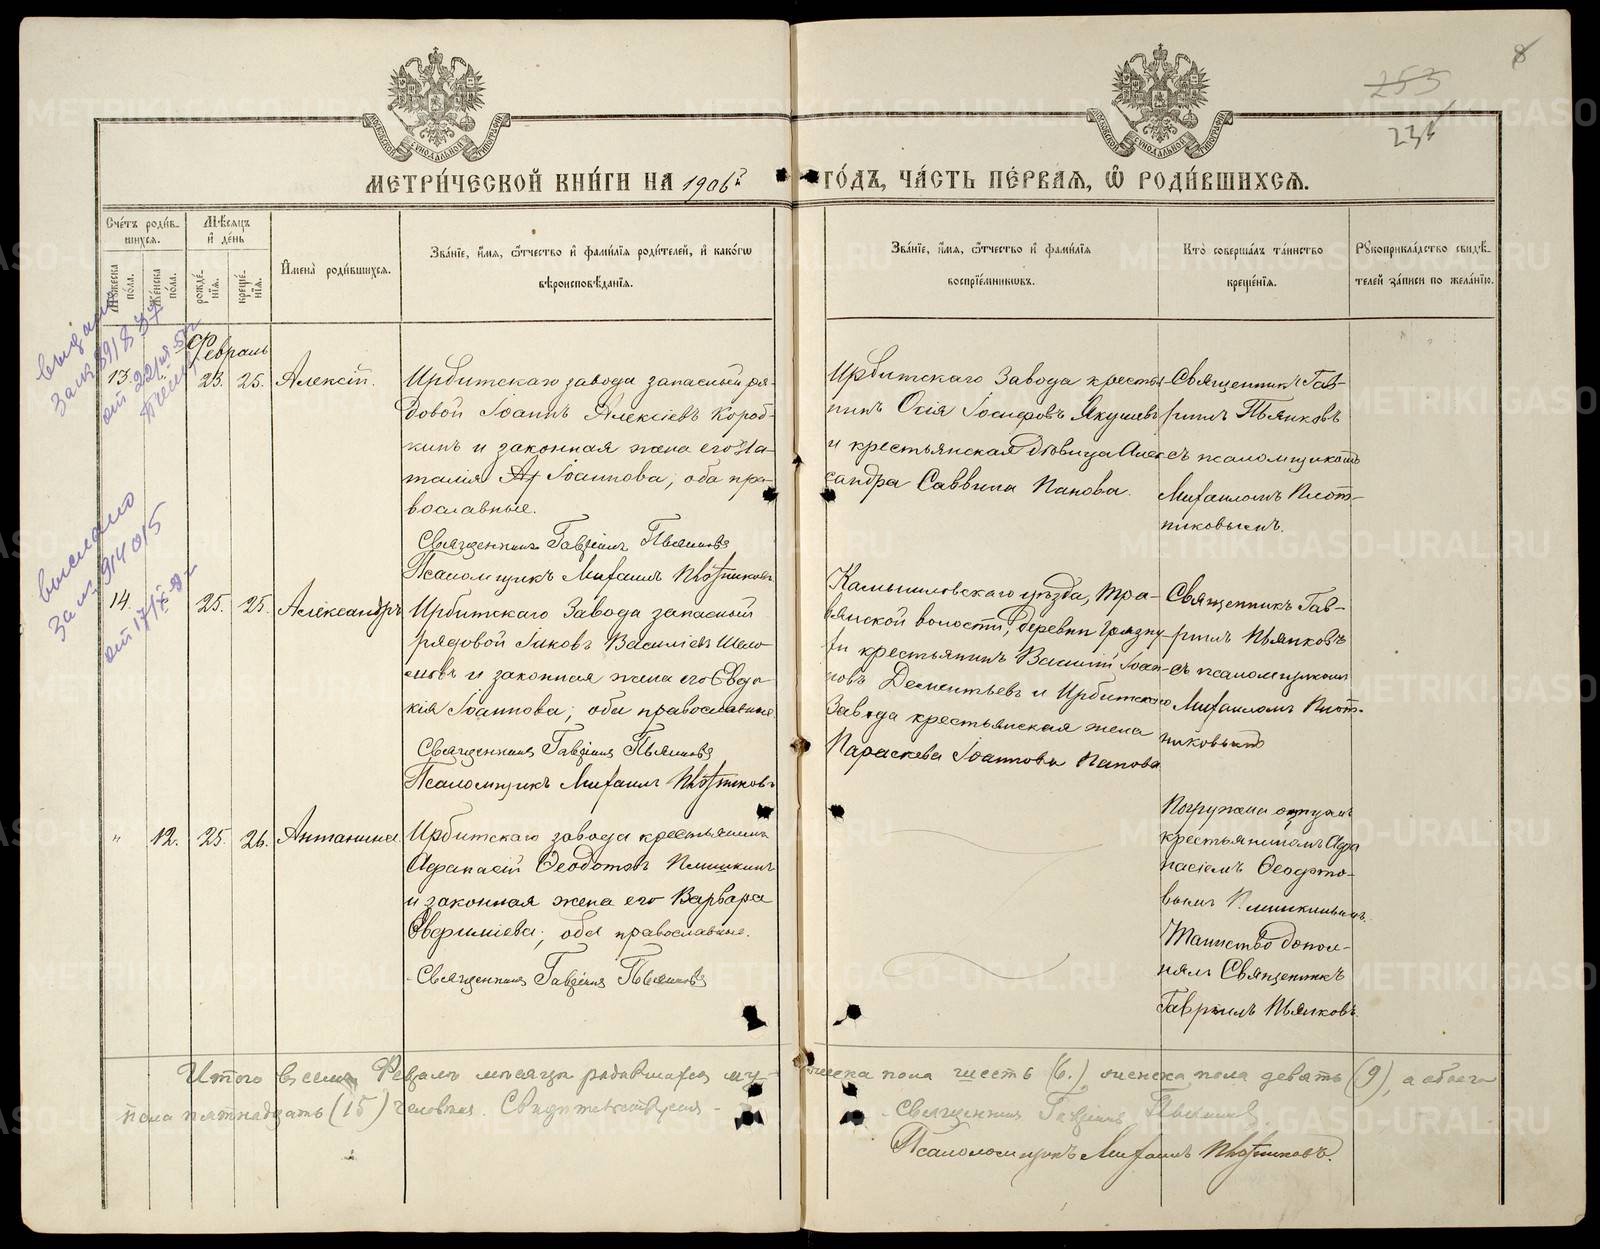 253
236
8
МЕТРИ́ЧЕСКОЙ КНИ́ГИ НА 1906й ГО́ДЪ, ЧА́СТЬ ПЕ́РВАЯ, Ѡ РОДИ́ВШИХСЯ.
Сче́тъ роди́в-
шихся.
Мꙋжеска по́ла.
Же́нска по́ла.
Мѣ́сяцъ
и҆ де́нь
рожде́-
нїя.
креще́-
нїя.
И҆мена̀ роди́вшихся.
Зва́нїе, и҆́мя, ѻ҆́тчество и҆ фами́лїя роди́телей, и҆ како́гѡ
вѣроисповѣ́данїя.
Зва́нїе, и҆́мя, ѻ҆́тчество и҆ фами́лїя
воспрїе́мниковъ.
Кто̀ соверша́лъ та́инство
креще́нїя.
Рꙋкоприкла́дство свидѣ́-
телей за́писи по жела́нїю.
Февраль
13. " 23. 25. Алексій.
Ирбитскаго завода запасный ря-
довой Іоаннъ Алексіевъ Короб-
кинъ и законная жена его На-
талія Іоаннова; оба пра-
вославные.
Священникъ Гавріилъ Пьянковъ
Псаломщикъ Михаилъ Плотниковъ
Ирбитскаго Завода кресть-
нинъ Осія Іосифовъ Якушевъ
и крестьянская дѣвица Алек-
сандра Саввина Панова.
Священникъ Гав-
ріилъ Пьянковъ
съ псаломщикомъ
Михаиломъ Плот-
никовымъ.
14. 25. 25. Александръ
Ирбитскаго Завода запасный
рядовой Іаковъ Василіевъ Шело-
мовъ и законная жена его Евдо-
кія Іоаннова; оба православные
Священникъ Гавріилъ Пьянковъ
Псаломщикъ Михаилъ Плотниковъ
Камышловскаго уѣзда, Тра-
вянской волости, деревни Грязну-
хи крестьянинъ Василій Іоан-
новъ Дементьевъ и Ирбитскаго
Завода крестьянская жена
Параскева Іоаннова Панова
Священникъ Гав-
ріилъ Пьянковъ
съ псаломщикомъ
Михаиломъ Плот-
никовымъ
" 12. 25. 26. Антонина
Ирбитскаго завода крестьянинъ
Афанасій Ѳеодотовъ
и законная жена его Варвара
оба православные.
Священникъ Гавріилъ Пьянковъ
Погружена отцомъ
крестьяниномъ Афа-
насіемъ Ѳеодото-
вымъ
Таинство допол-
нялъ Священникъ
Гавріилъ Пьянковъ.
Итого всего въ Февралѣ мѣсяцѣ родившихся му-
жеска пола шесть (6.) женска пола девять (9), а обоего
пола пятнадцать (15) человѣкъ. Свидѣтельствуемъ -
Священникъ Гавріилъ Пьянковъ.
Псаломщикъ Михаилъ Плотниковъ.
выслано
за № 914015
METRIKI.GASO-URAL.RU